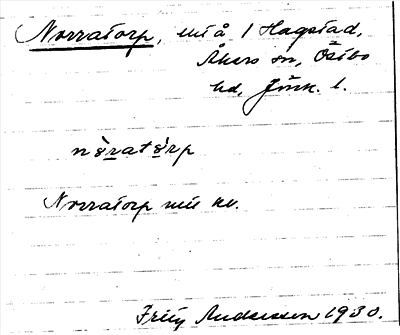 Norratorp, utå / Hagstad,
Åkers sn, Östbo
hd, Jönk. l.
nòratòrp
Norratorp utå kv.
Fritz Andersson 1930.